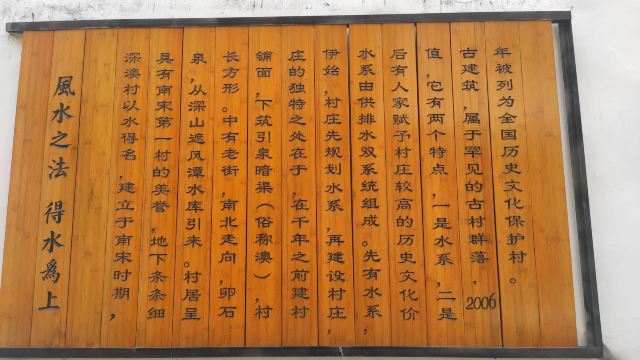 風水之法 得水爲上
深澳村以水得名，建立于南宋时期，
具有南宋第一村的美誉，地下条条细
泉，从深山遮风潭水库引来。村居呈
长方形。中有老街，南北走向，卵石
铺面，下筑引泉暗渠（俗称澳），村
庄的独特之处在于，在千年之前建村
伊始，村庄先规划水系，再建设村庄，
水系由供排水双系统组成。先有水系，
后有人家赋予村庄较高的历史文化价
值，它有两个特点，一是水系，二是
古建筑，属于罕见的古村群落，2006
年被列为全国历史文化保护村。